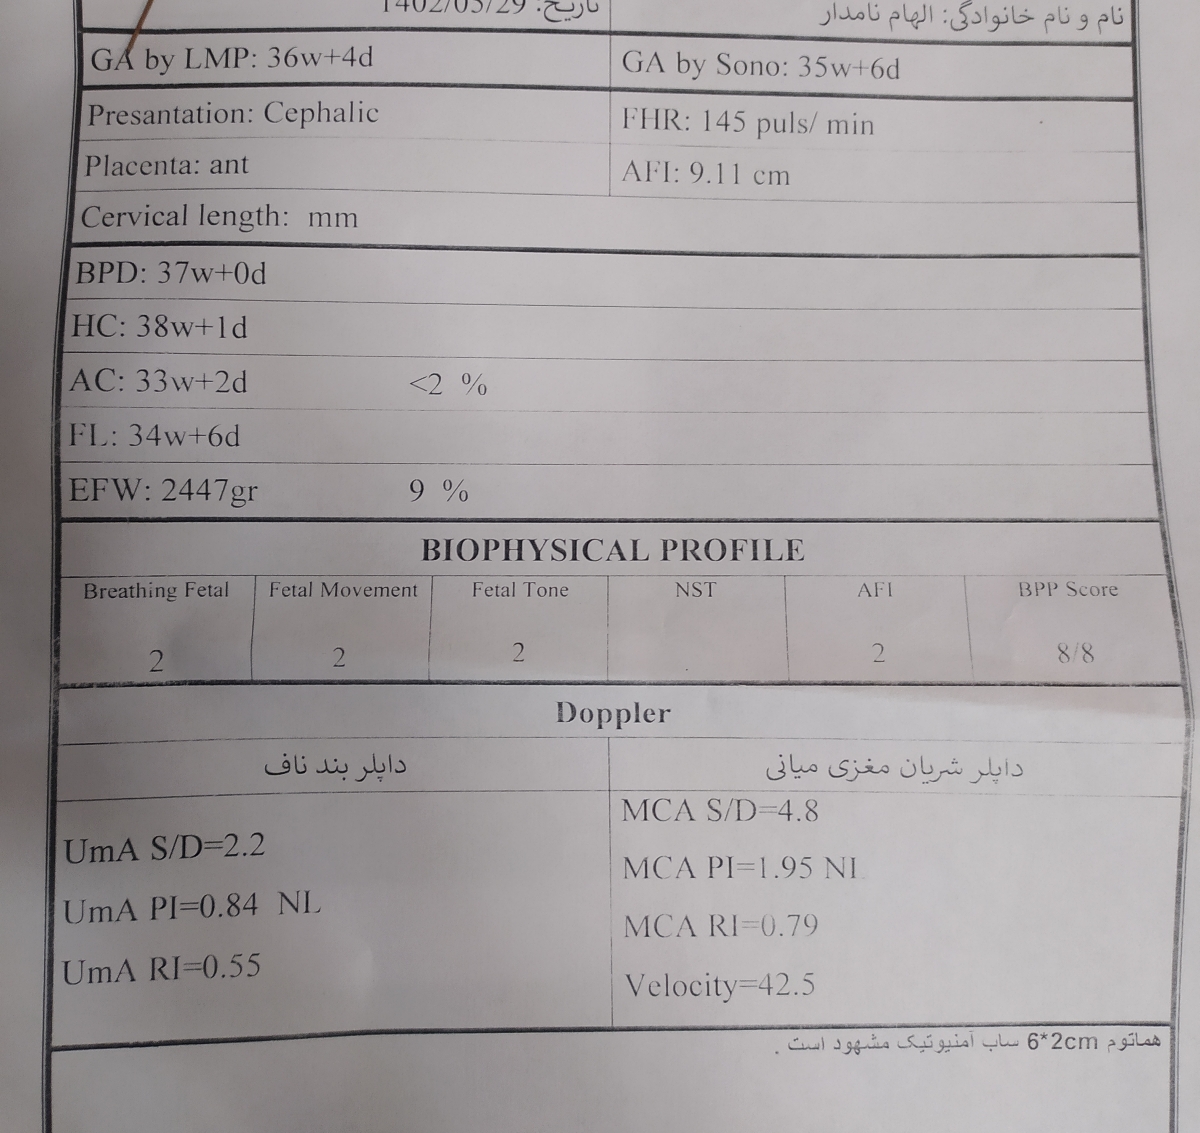 نام و نام خانوادگی: الهام نامدار
تاریخ: 1402/05/29
GA by LMP: 36w+4d
GA by Sono: 35w+6d
Presantation: Cephalic
FHR: 145 puls/ min
Placenta: ant
AFI: 9.11 cm
Cervical length: mm
BPD: 37w+0d
HC: 38w+1d
AC: 33w+2d <2 %
FL: 34w+6d
EFW: 2447gr 9 %
BIOPHYSICAL PROFILE
Breathing Fetal Fetal Movement Fetal Tone NST AFI BPP Score
2 2 2 2 8/8
Doppler
داپلر شریان مغزی میانی
داپلر بند ناف
MCA S/D=4.8
MCA PI=1.95 Nl
MCA RI=0.79
Velocity=42.5
UmA S/D=2.2
UmA PI=0.84 NL
UmA RI=0.55
هماتوم 6*2cm ساب آمنیوتیک مشهود است .